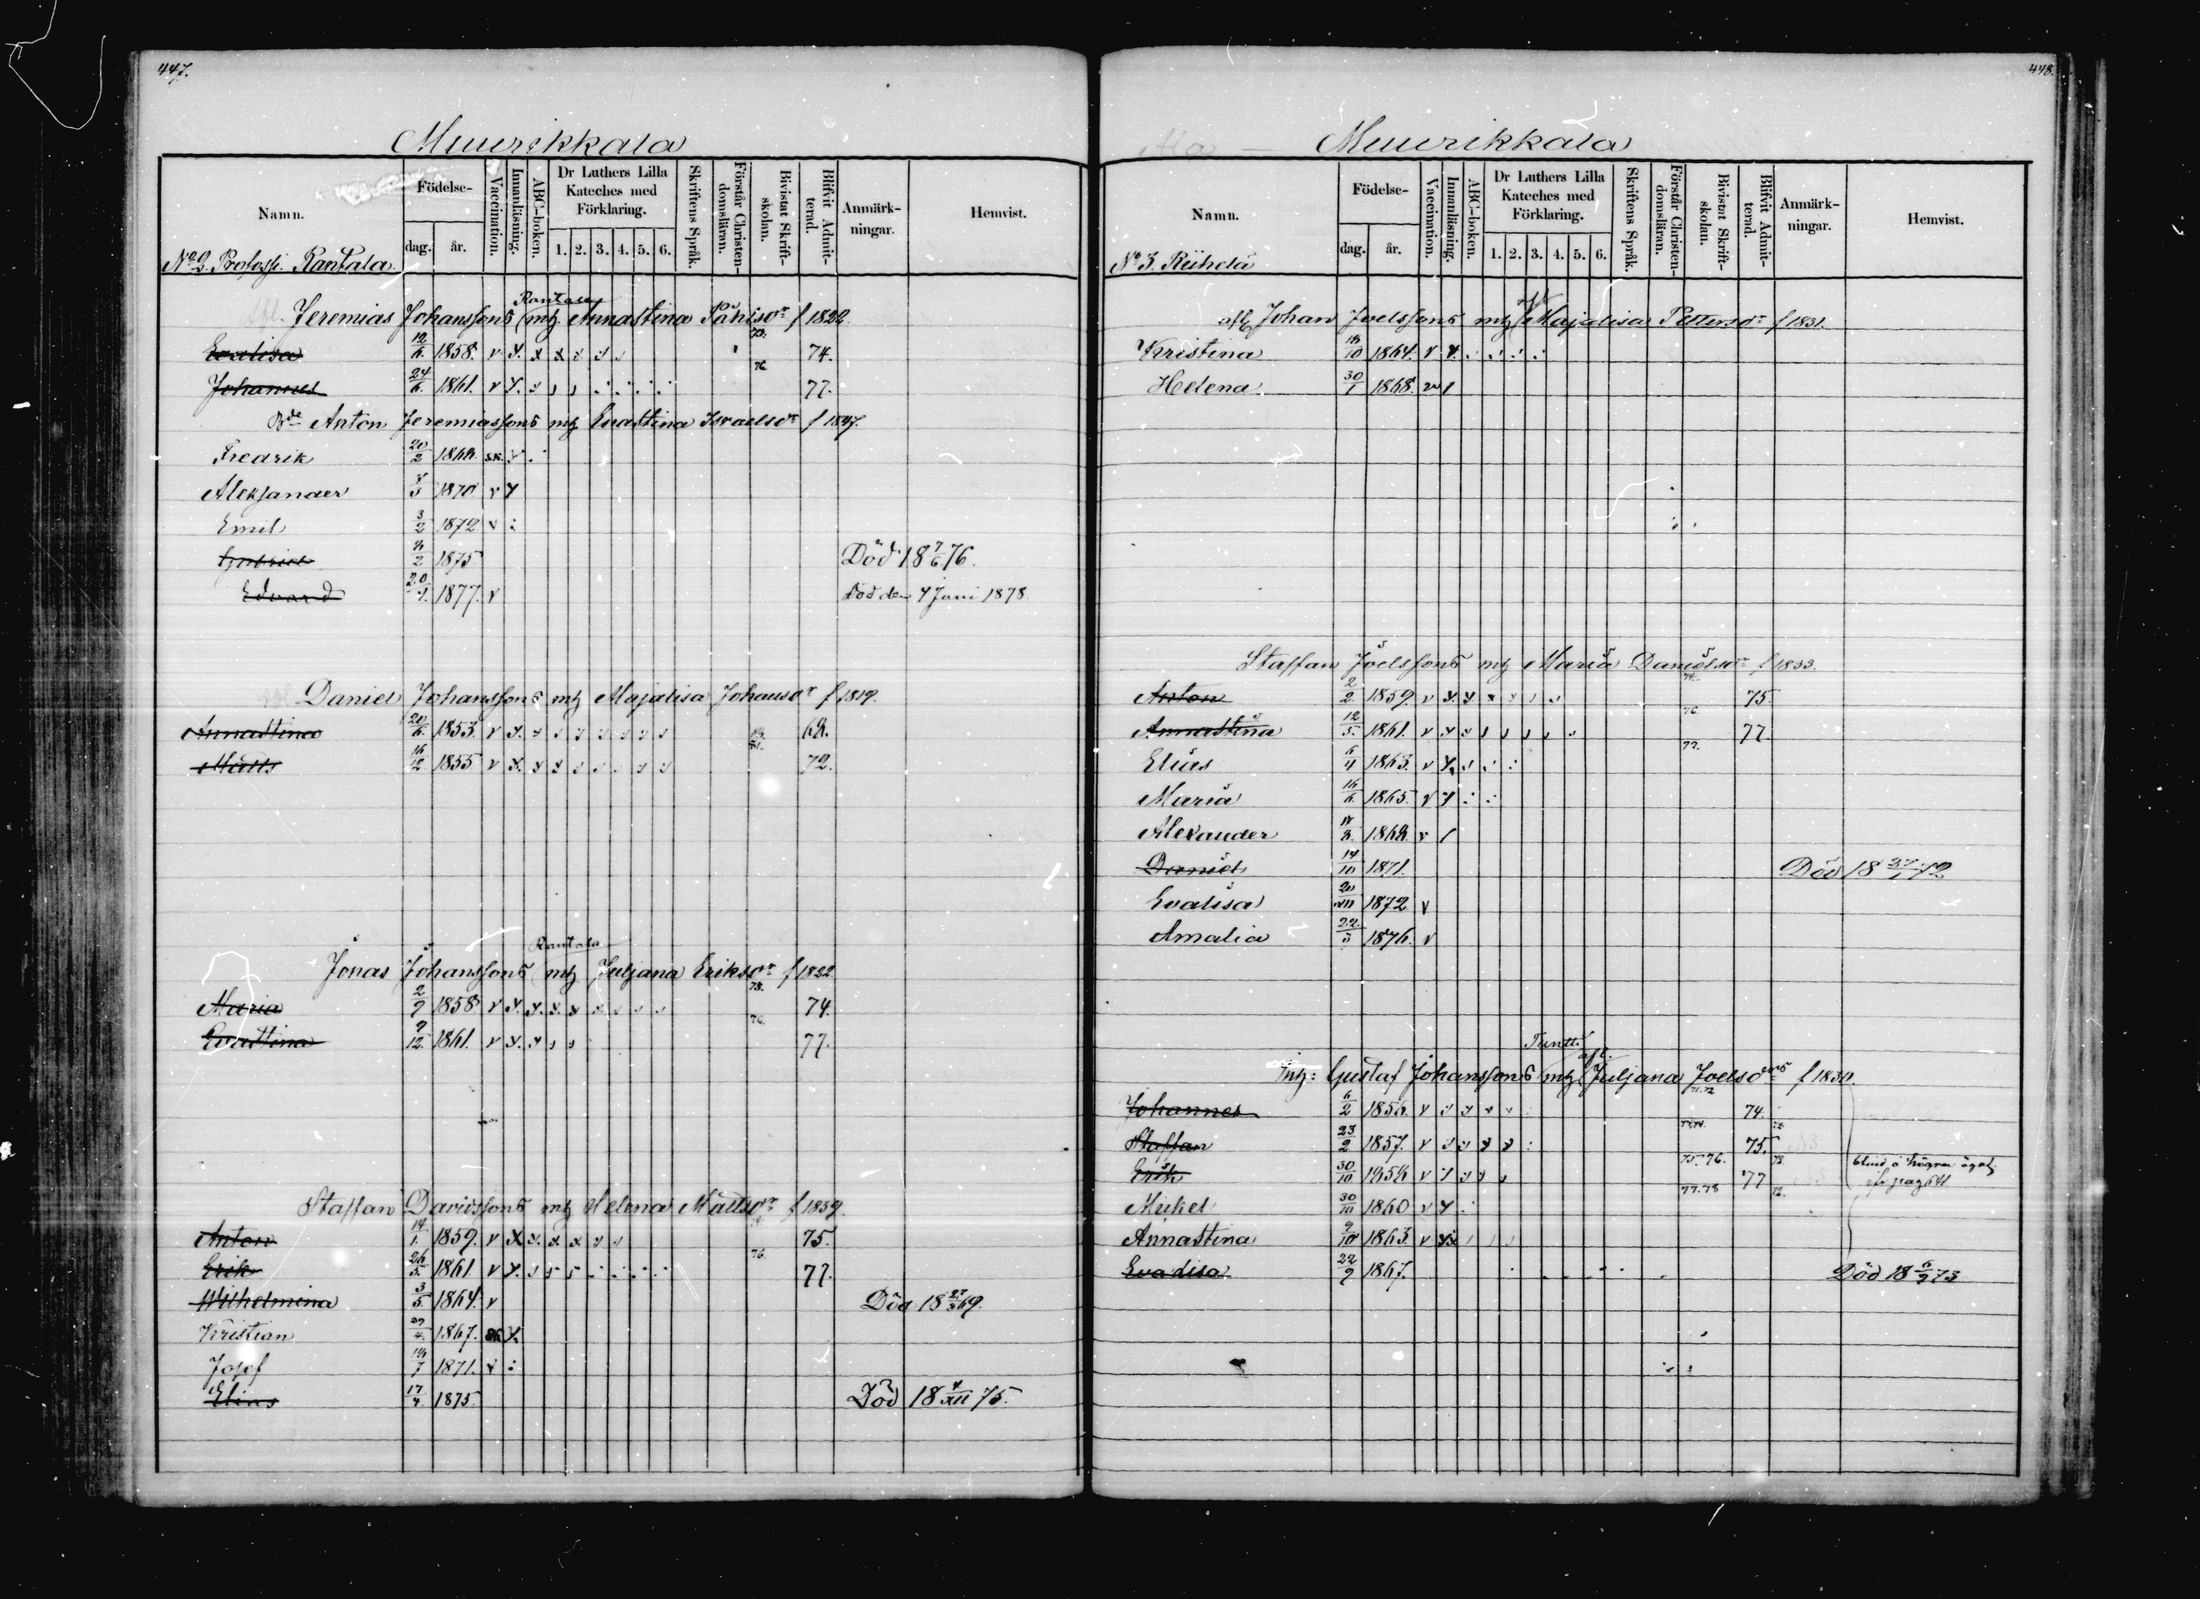 447.
Muurikkala
Namn.
Födelse-
dag.
år.
Vaccination.
Innanläsning.
ABC-boken.
Dr Luthers Lilla Kateches med Förklaring.
1. 2. 3. 4. 5. 6.
Skriftens Språk.
Förstår Christendomsläran.
Bivistat Skriftskolan.
Blifvit Admitterad.
Anmärkningar.
Hemvist.
No 2. Rantala
Rantala
Jeremias Johanssons mtz Annastina Påhlsdr f 1822.
73.
Evalisa 12/6 1858. v 74.
76.
Johannes 24/6 1861. v 77.
Bde Anton Jeremiassons mtz Evastina Israelsdr f 1847.
Fredrik 20/2 1868 sk.
Alexsander 1870 v
Emil 3/2 1872 v
Gabriel 1875 Död 18 7/6 76.
Edvard 20/4 1877. v Död den 4 Juni 1878
Daniel Johanssons mtz Majalisa Johansdr f 1819.
Annastina 20/6 1853. v 68.
Matts 16/12 1855 v 72.
Rantala
Jonas Johanssons mtz Juljana Eriksdr f 1832
73.
Maria 2/9 1858 v 74.
76.
Evastina 9/12 1861. v 77.
Staffan Davidssons mtz Helena Mattsdr f 1839.
Anton 14/1 1859. v 75.
76.
Erik 26/5 1861 v 77.
Wilhelmina 3/5 1864. v Död 18 27/3 69.
Kristian 1867. sk.
Josef 1871. v
Elias 17/4 1875 Död 18 4/XII 75.
448.
Muurikkala
Namn.
Födelse-
dag.
år.
Vaccination.
Innanläsning.
ABC-boken.
Dr Luthers Lilla Kateches med Förklaring.
1. 2. 3. 4. 5. 6.
Skriftens Språk.
Förstår Christendomsläran.
Bivistat Skriftskolan.
Blifvit Admitterad.
Anmärkningar.
Hemvist.
No 3. Riihelä
afl. Johan Joelssons mtz Majalisa Pettersdr f 1831.
Kristina 18/10 1864. v
Helena 30/1 1868.
Staffan Joelssons mtz Maria Danielsdr f 1833.
74.
Anton 2/2 1859. v 75.
76.
Annastina 12/5 1861. v 77.
77.
Elias 6/4 1863. v
Maria 16/6 1865. v
Alexander 1868. v
Daniel 14/10 1871. Död 18 27/1 72
Evalisa 1872 v
Amalia 22/5 1876. v
Tuntti
afl.
Inh: Gustaf Johanssons mtz Juljana Joelsdrs f 1830.
71.72
Johannes 6/2 1856. v 74.
Staffan 23/2 1857. v 75.
75.76.
Erik 30/10 1858 v 77 blind å högra ögat
77.78
Mikel 30/10 1860 v
Annastina 9/10 1863 v
Evalisa 22/9 1867. Död 18 6/9 73